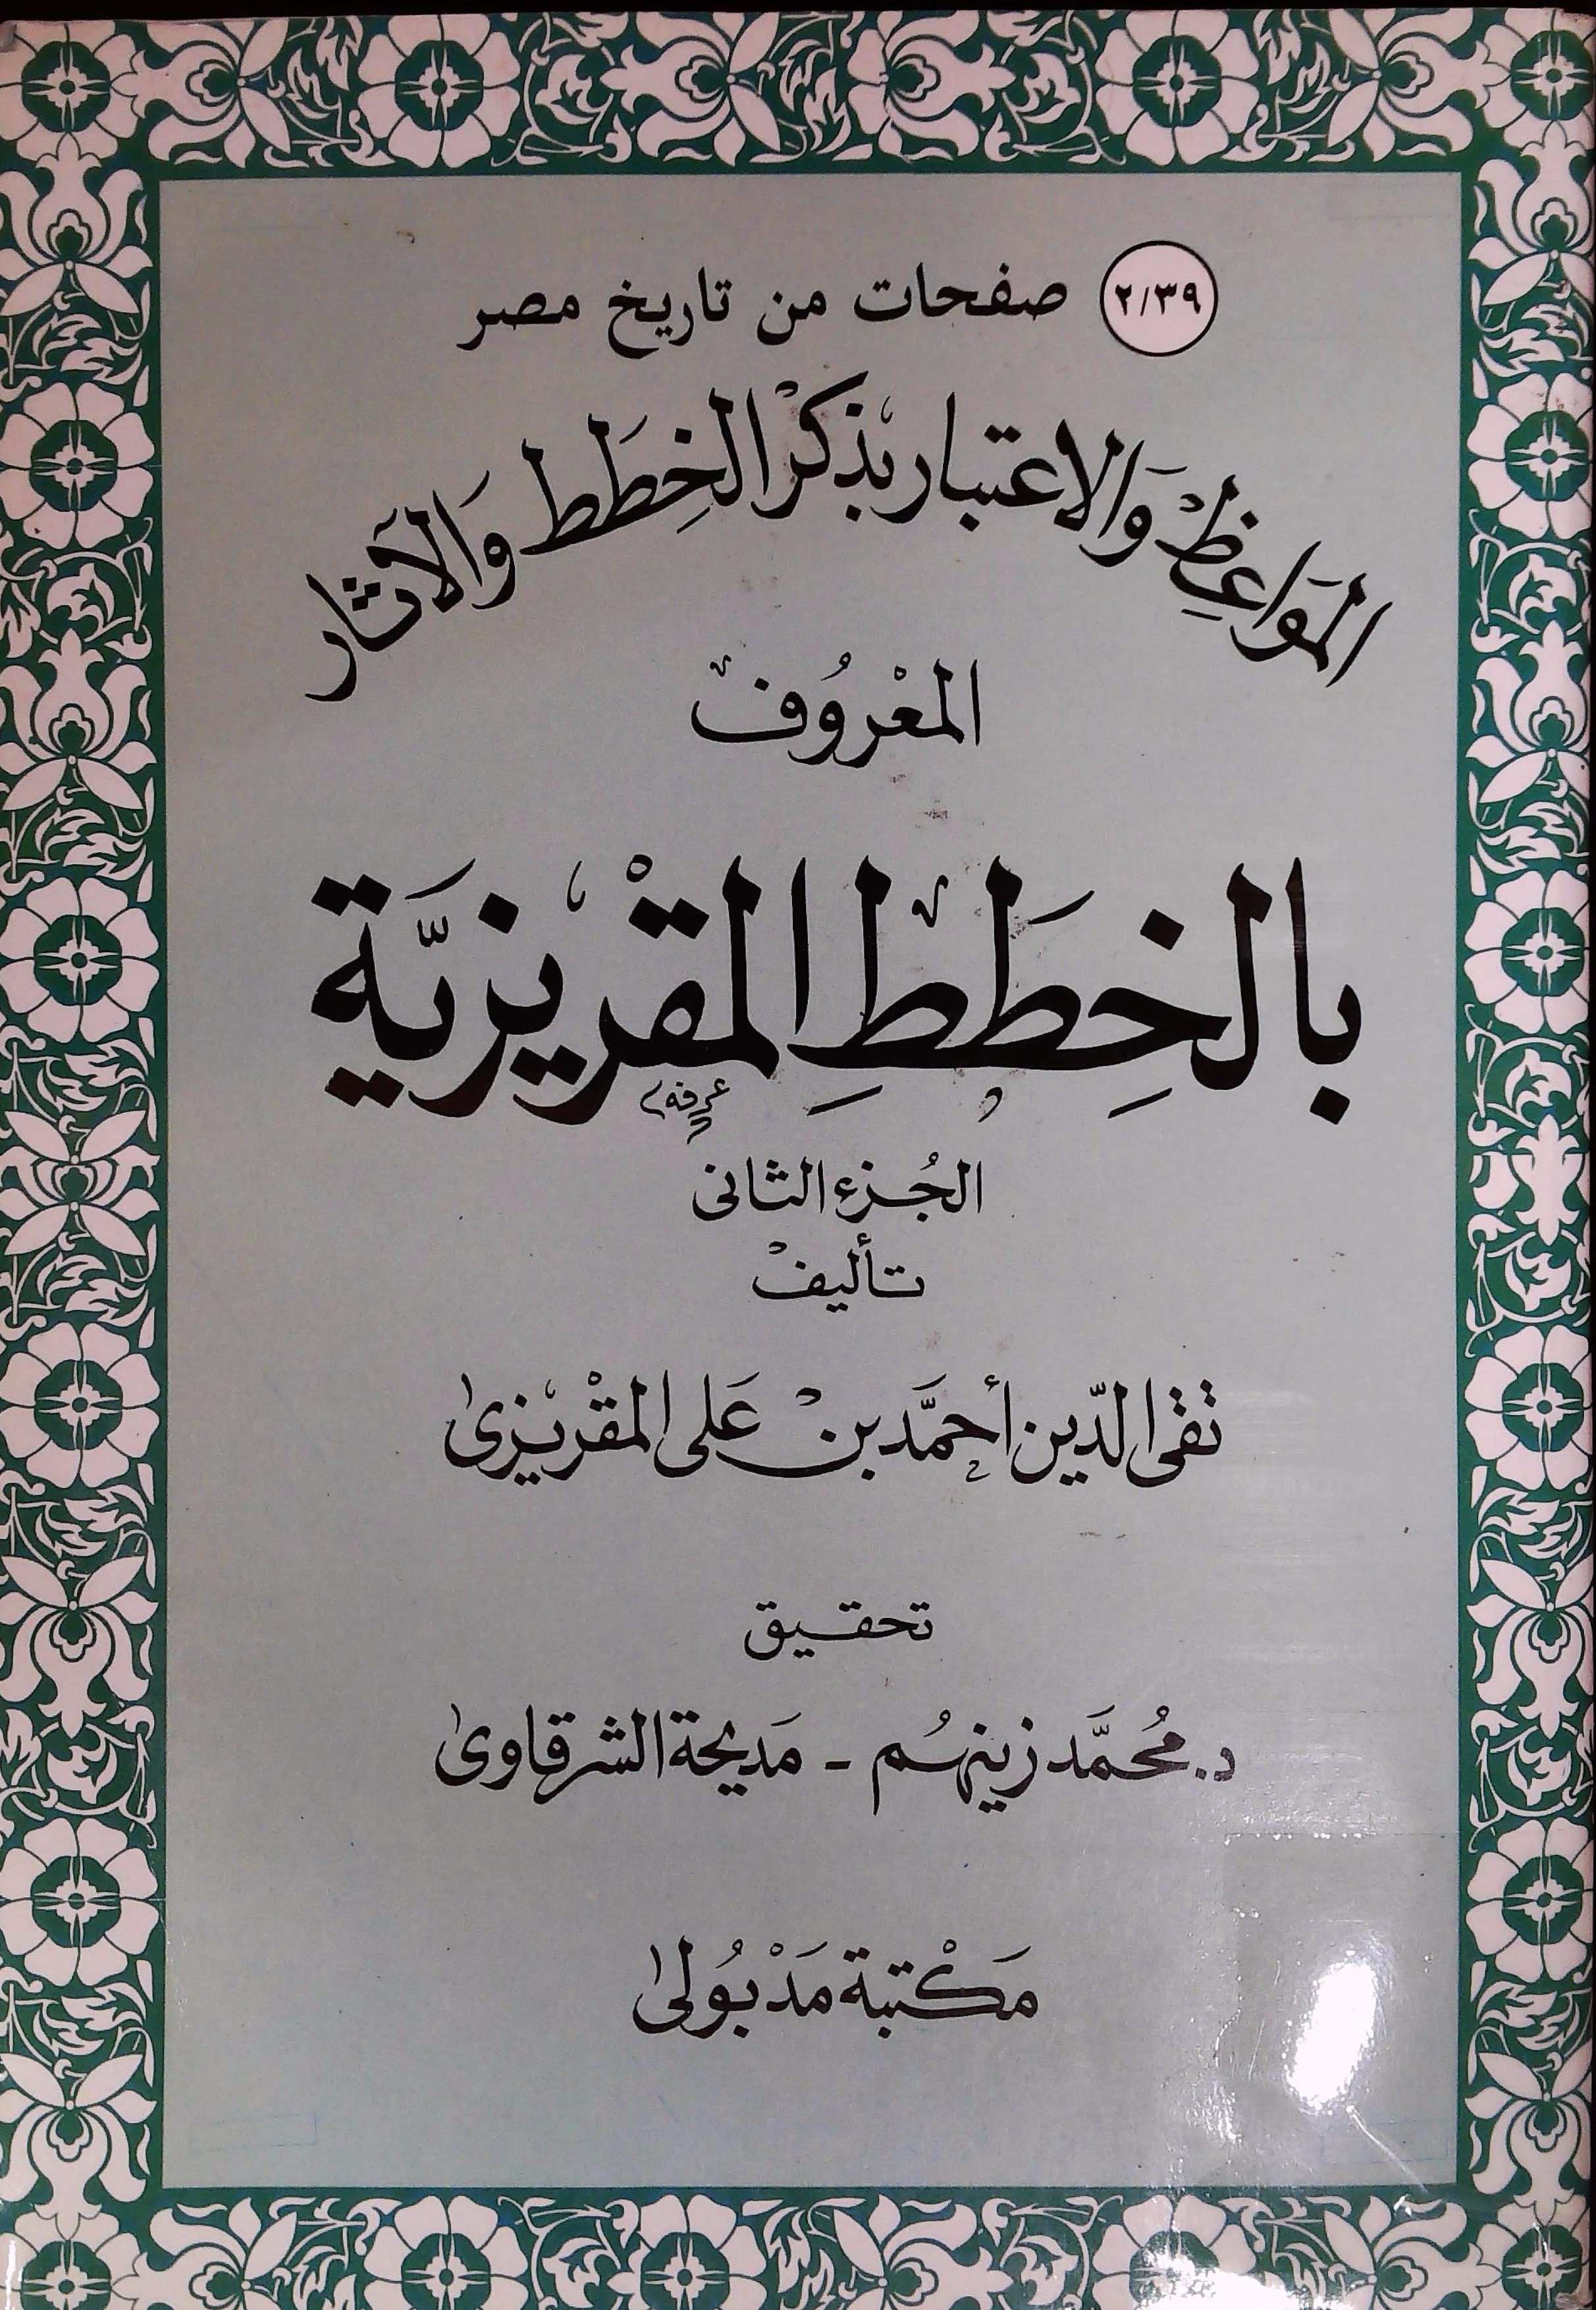 ٢/٣٩ صفحات من تاريخ مصر
المَوَاعِظْ وَالاعتبار بذكر الخِطَط وَالآثار
المعْرُوف
بالخِطَطِ المقْريزيَّة
عرفه
الجُزء الثانى
تأليف
تقى الدّين أحمَّد بن عَلى المقْريزى
تحقيق
د. مُحمَّد زينهُم - مَديحة الشرقاوى
مَكْتبة مَدْبُولى